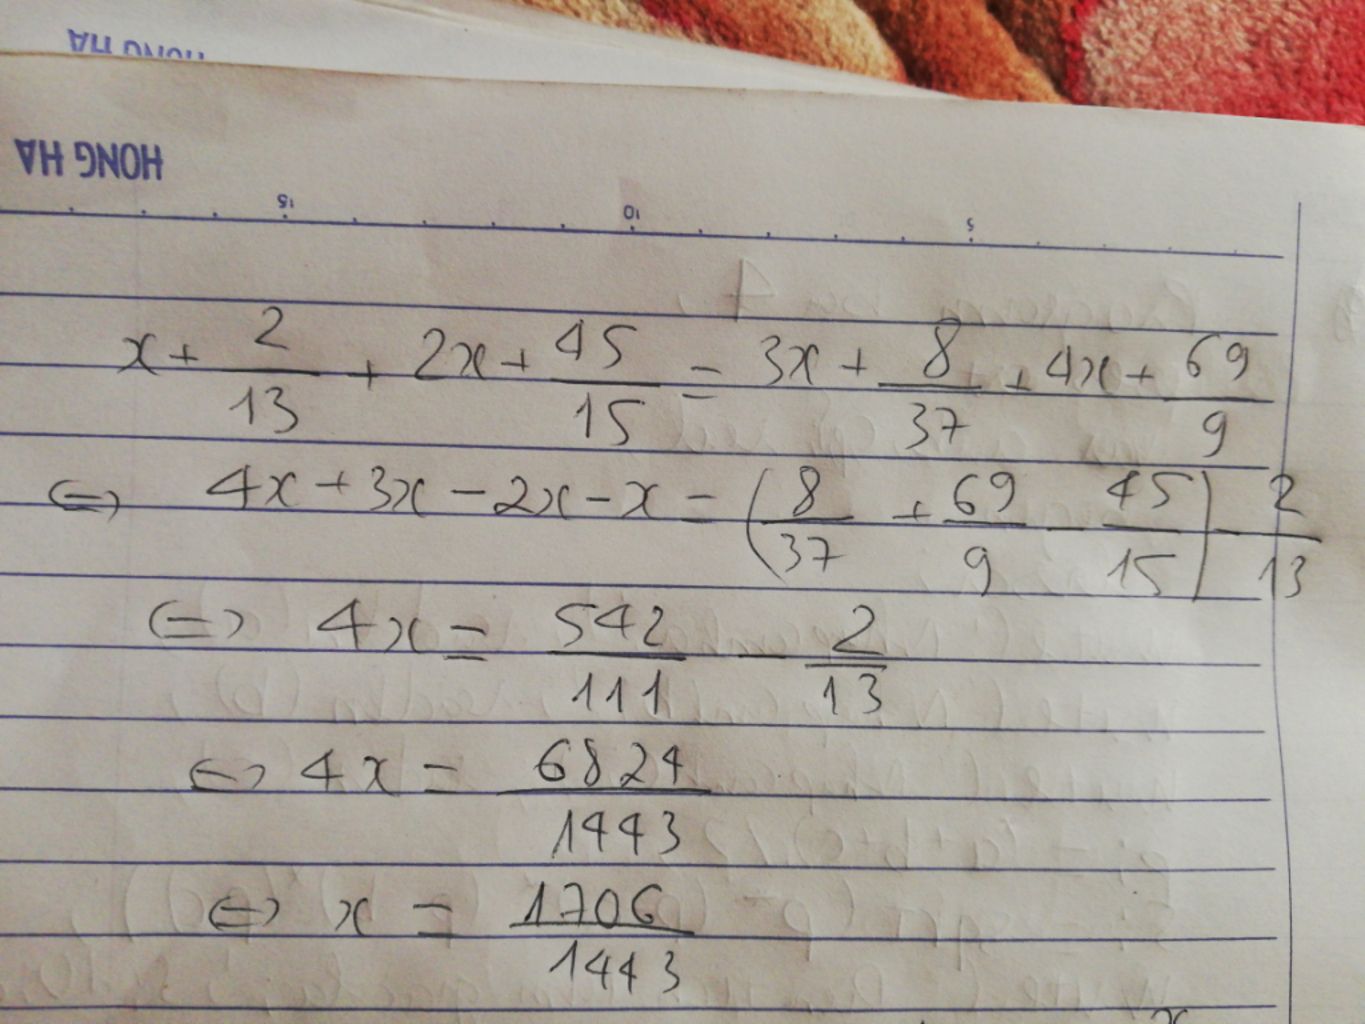 HONG HA
HONG HA
15 10 5
x + 2/13 + 2x + 45/15 = 3x + 8/37 + 4x + 69/9
<=> 4x + 3x - 2x - x = (8/37 + 69/9 - 45/15) - 2/13
<=> 4x = 542/111 - 2/13
<=> 4x = 6824/1443
<=> x = 1706/1443